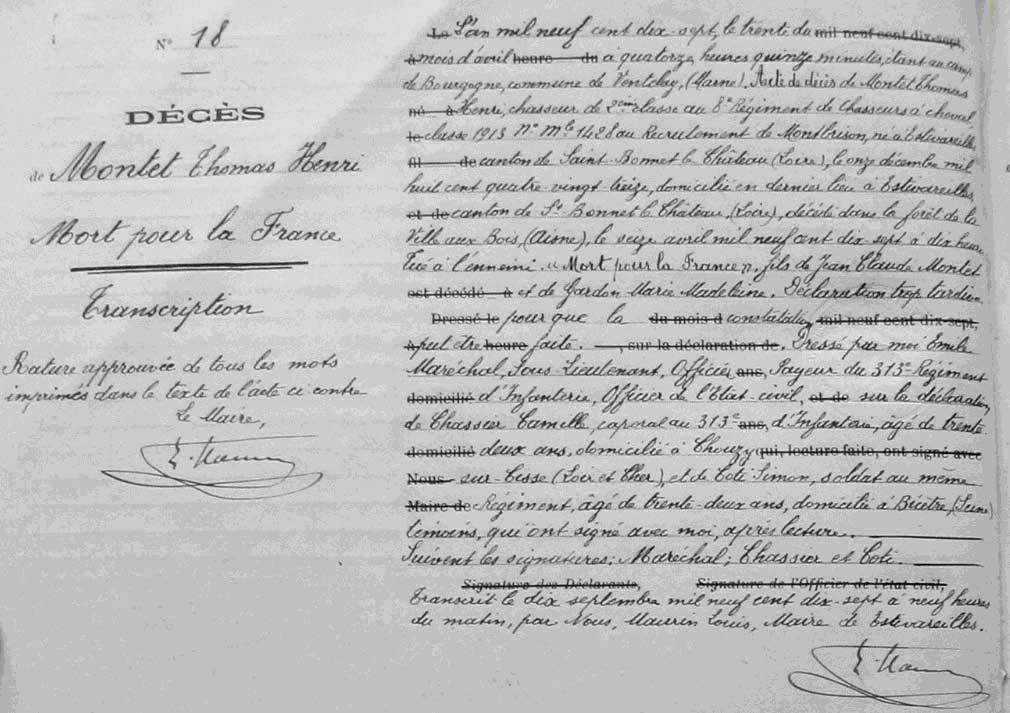 N° 18
DÉCÈS
de Montet Thomas Henri
Mort pour la France
Transcription
Rature approuvée de tous les mots
imprimés dans le texte de l'acte ci contre
Le Maire,
L. Maurin
Le L'an mil neuf cent dix-sept, le trente du mil neuf cent dix-sept,
à mois d'avril heure du à quatorze heures quinze minutes, étant au camp
de Bourgogne, commune de Ventelay, (Marne). Acte de décès de Montet Thomas
né à Henri, chasseur de 2ème classe au 8e Régiment de Chasseurs à cheval,
le classe 1913 N° Mle 1428 au Recrutement de Montbrison, né à Estivareilles
fil de canton de Saint-Bonnet le Château (Loire), le onze décembre mil
huit cent quatre-vingt treize, domicilié en dernier lieu à Estivareilles
et de canton de St Bonnet le Château, (Loire), décédé dans la forêt de la
Ville aux Bois, (Aisne), le seize avril mil neuf cent dix-sept à dix heures
Tué à l'ennemi « Mort pour la France », fils de Jean Claude Montet
est décédé à et de Gardon Marie Madeleine. Déclaration trop tardive
Dressé le pour que la du mois d constatation mil neuf cent dix-sept,
à put etre heure faite. , sur la déclaration de Dressé par moi Emile
Maréchal, Sous-Lieutenant, Officier ans, Payeur du 313e Régiment
domicilié d'Infanterie, Officier de l'Etat-civil, et de sur la déclaration
de Chassier Camille, caporal au 313e ans, d'Infanterie, âgé de trente
domicilié deux ans, domicilié à Chouzy qui, lecture faite, ont signé avec
Nous sur-Cisse (Loir et Cher), et de Coti Simon, soldat au même
Maire de Régiment, âgé de trente-deux ans, domicilié à Bicêtre, (Seine)
témoins, qui ont signé avec moi, après lecture.
Suivent les signatures: Maréchal; Chassier et Coti.
Signature des Déclarants, Signature de l'Officier de l'état civil,
Transcrit le dix septembre mil neuf cent dix-sept à neuf heures
du matin, par Nous, Maurin Louis, Maire de Estivareilles.
L. Maurin